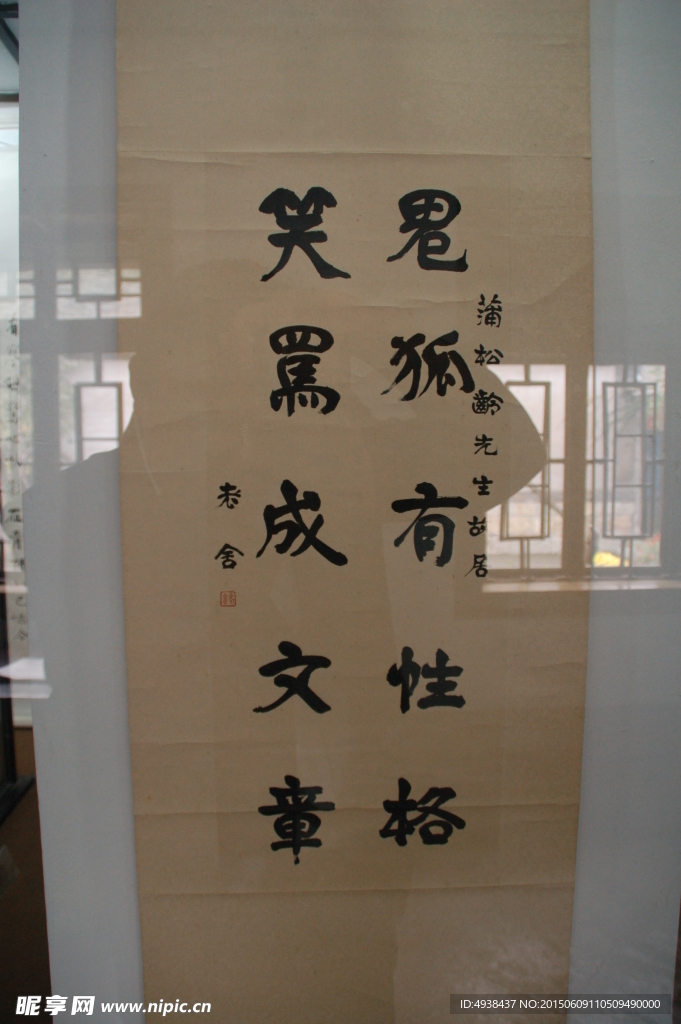 蒲松齡先生故居
鬼狐有性格
笑罵成文章
老舍
昵享网 www.nipic.cn
ID:4938437 NO:20150609110509490000